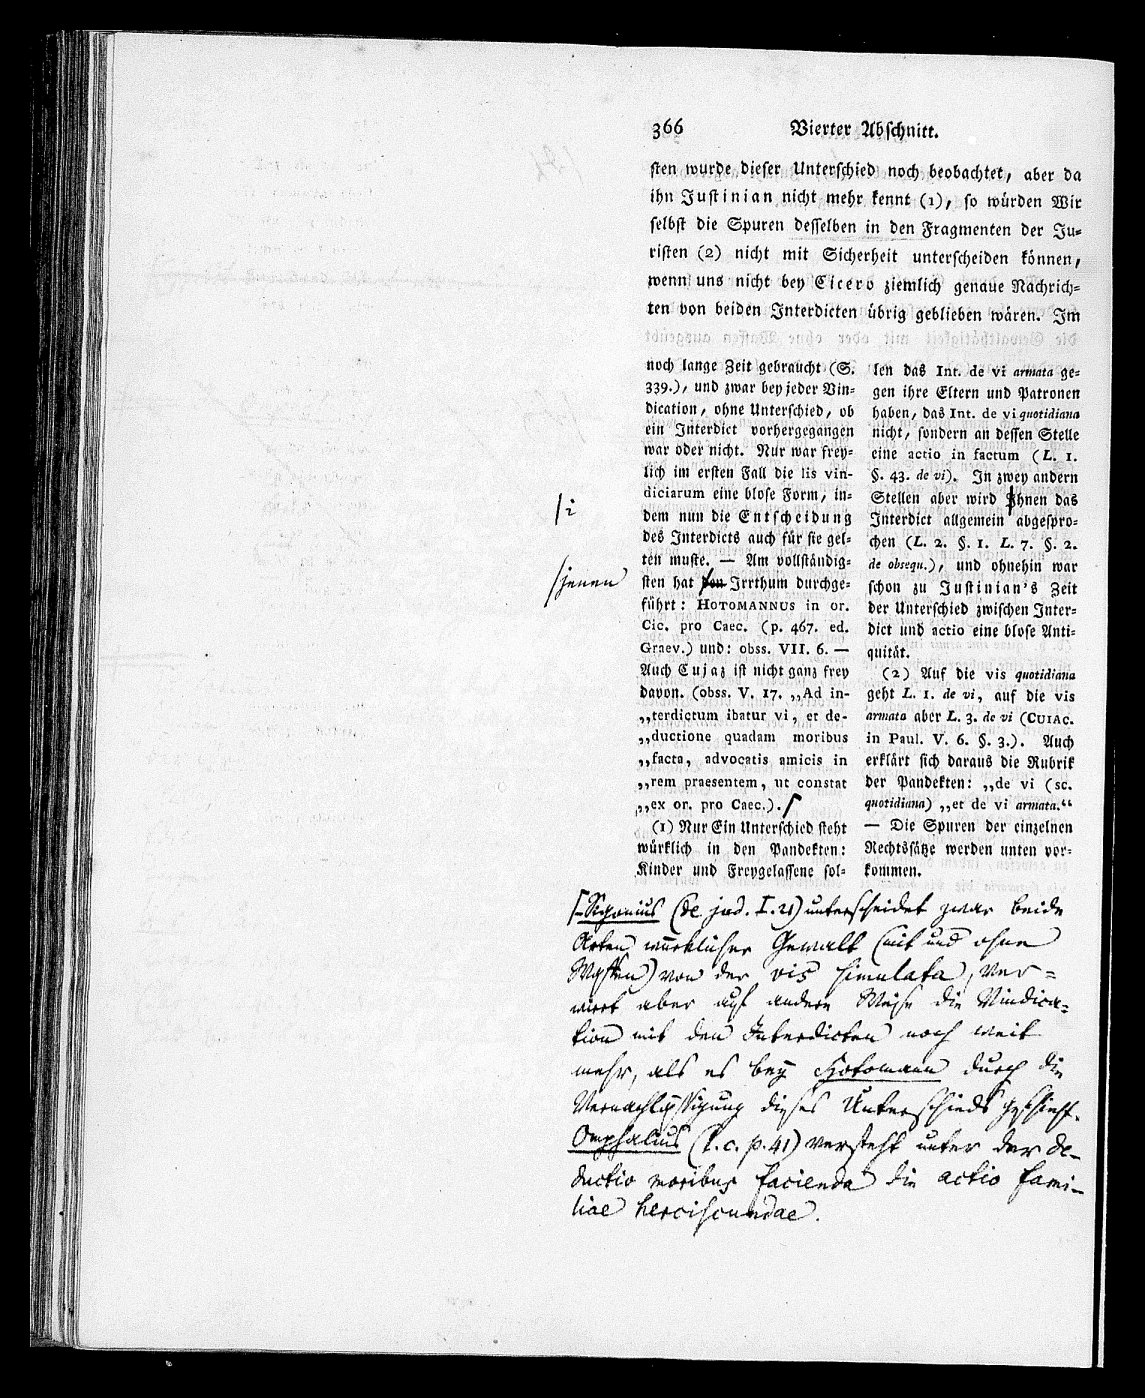 366 Vierter Abschnitt.
sten wurde dieser Unterschied noch beobachtet, aber da
ihn Justinian nicht mehr kennt (1), so würden Wir
selbst die Spuren desselben in den Fragmenten der Ju-
risten (2) nicht mit Sicherheit unterscheiden können,
wenn uns nicht bey Cicero ziemlich genaue Nachrich-
ten von beiden Interdicten übrig geblieben wären. Im
noch lange Zeit gebraucht (S.
339.), und zwar bey jeder Vin-
dication, ohne Unterschied, ob
ein Interdict vorhergegangen
war oder nicht. Nur war frey-
lich im ersten Fall die lis vin-
diciarum eine blose Form, in-
dem nun die Entscheidung
des Interdicts auch für sie gel-
ten muste. — Am vollständig-
sten hat den Irrthum durchge-
führt: HOTOMANNUS in or.
Cic. pro Caec. (p. 467. ed.
Graev.) und: obss. VII. 6. —
Auch Cujaz ist nicht ganz frey
davon. (obss. V. 17. „Ad in-
„terdictum ibatur vi, et de-
„ductione quadam moribus
„facta, advocatis amicis in
„rem praesentem, ut constat
„ex or. pro Caec.).
(1) Nur Ein Unterschied steht
würklich in den Pandekten:
Kinder und Freygelassene sol-
len das Int. de vi armata ge-
gen ihre Eltern und Patronen
haben, das Int. de vi quotidiana
nicht, sondern an dessen Stelle
eine actio in factum (L. 1.
§. 43. de vi). In zwey andern
Stellen aber wird Ihnen das
Interdict allgemein abgespro-
chen (L. 2. §. 1. L. 7. §. 2.
de obsequ.), und ohnehin war
schon zu Justinian's Zeit
der Unterschied zwischen Inter-
dict und actio eine blose Anti-
quität.
(2) Auf die vis quotidiana
geht L. 1. de vi, auf die vis
armata aber L. 3. de vi (CUIAC.
in Paul. V. 6. §. 3.). Auch
erklärt sich daraus die Rubrik
der Pandekten: „de vi (sc.
quotidiana) „et de vi armata.“
— Die Spuren der einzelnen
Rechtssätze werden unten vor-
kommen.
/i
/jenen
/-Sigonius (de jud. I. 21) unterscheidet zwar beide
Arten würklicher Gewalt (mit und ohne
Waffen) von der vis simulata, ver-
wirrt aber auf andere Weise die Vindica-
tion mit den Interdicten noch weit
mehr, als es bey Hotomann durch die
Vernachlässigung dieses Unterschieds geschieht.
Omphalius (l. c. p. 41) versteht unter der de-
ductio moribus facienda die actio fami-
liae herciscundae.